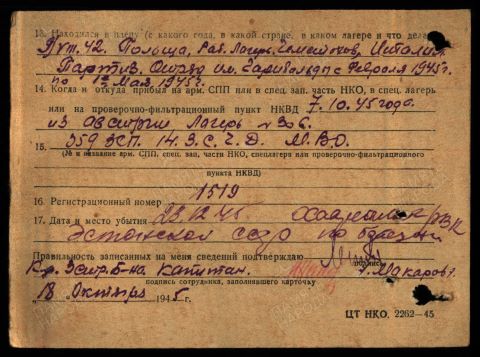 13. Находился в плену (с какого года, в какой стране, в каком лагере и что делал
Польша, Раб. Лагерь. Италия
Партиз. Отряд им. Гарибальди с Февраля 1945 г.
по Мая 1945 г.
14. Когда и откуда прибыл на арм. СПП или в спец. зап. часть НКО, в спец. лагерь
или на проверочно-фильтрационный пункт НКВД 7.10.45 года
из Австрии Лагерь № 306.
15. 359 ЗСП. 14. З. С. Ч. Д. М. В. О.
(№ и название арм. СПП, спец. зап. части НКО, спецлагеря или проверочно-фильтрационного
пункта НКВД)
16. Регистрационный номер 1519
17. Дата и место убытия 23.12.45 РВК
Эстонской ССР
Правильность записанных на меня сведений подтверждаю
подпись
К-р Эстр. Б-на Капитан. Макаров
подпись сотрудника, заполнявшего карточку
18 „ Октября 1945 г.
ЦТ НКО. 2262—45